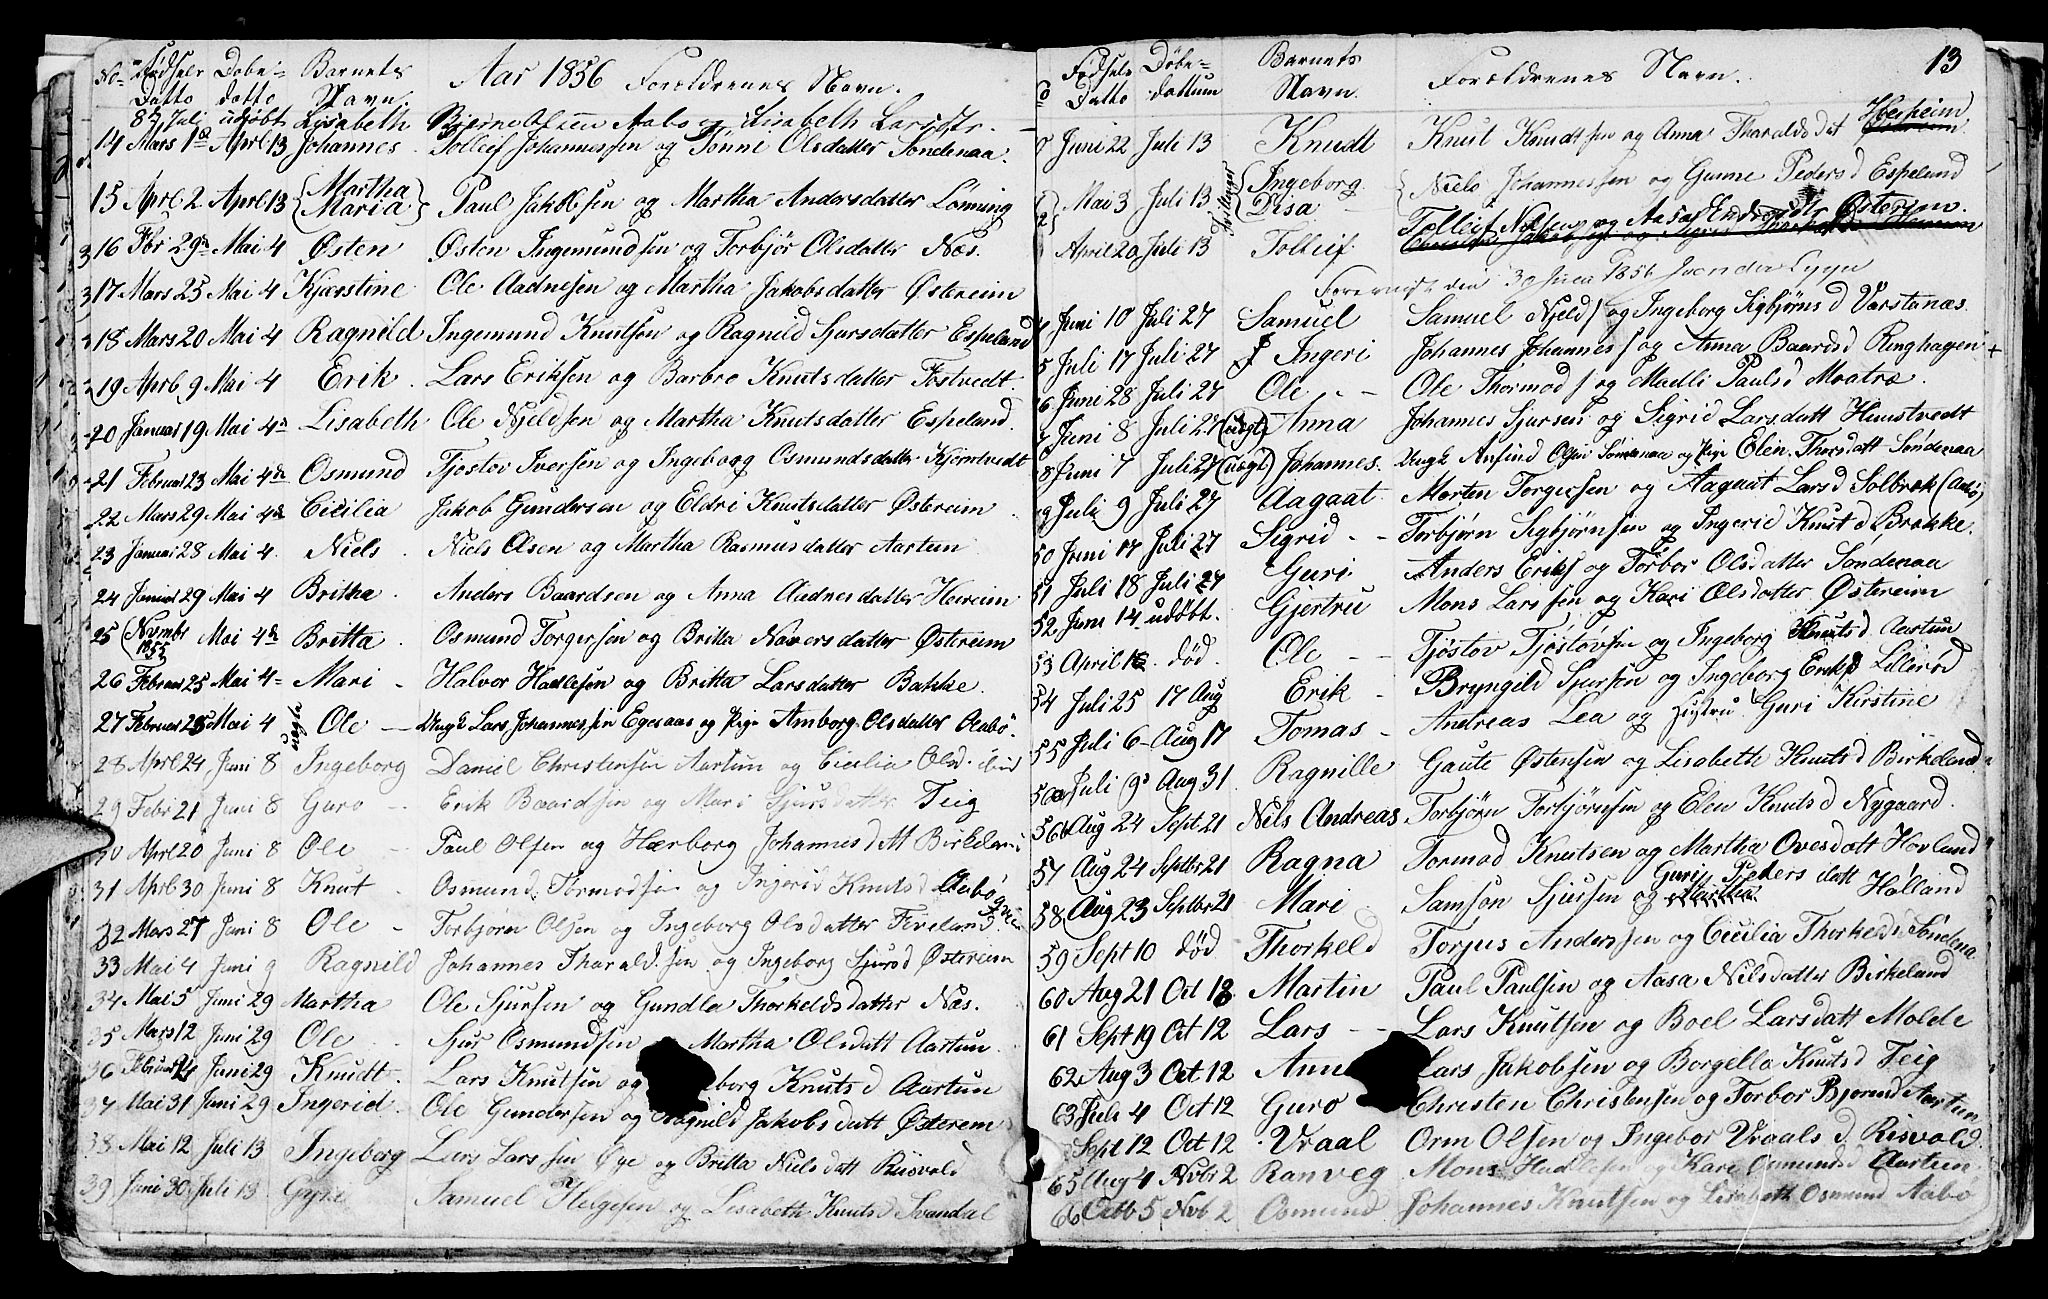 No Fødsels Datto Døbe-datto Barnets Navn. Aar 1856 Forældrenes Navn.
8 Juli udøbt Lisabeth Bjerne Olsen Aabø og Lisabeth Larsdtr.
14 Mars 1 Aprl 13 Johannes. Tolleif Johannessen og Tønne Olsdatter Søndenaa.
15 Aprl 2 Aprl 13 {Martha Maria} Paul Jakobsen og Martha Andersdatter Lønning
16 Fbr 29 Mai 4 Østen Østen Ingemundsen og Torbjør Olsdatter Næs.
17 Mars 25 Mai 4 Kjærstine Ole Aadnesen og Martha Jakobsdatter Østereim
18 Mars 20 Mai 4 Ragnild Ingemund Knutsen og Ragnild Sjursdatter Espeland
19 Aprl 9 Mai 4 Erik. Lars Eriksen og Barbro Knutsdatter Fostvedt.
20 Januar 19 Mai 4 Lisabeth Ole Njeldsen og Martha Knutsdatter Espeland.
21 Februar 23 Mai 4de Osmund Tjostov Iversen og Ingeborg Osmundsdatter Hjørntvedt
22 Mars 29 Mai 4de Cicilia Jakob Gundersen og Eldri Knutsdatter Østereim
23 Januar 28 Mai 4. Niels Niels Olsen og Martha Rasmusdatter Aartun
24 Januar 29 Mai 4 Britha. Anders Baardsen og Anna Aadnesdatter Hereim
25 (Novmbr 1855 Mai 4de Britta. Osmund Torgersen og Britta Naversdatter Østereim
26 Februar 25 Mai 4 Mari - Halvor Hadlesen og Britta Larsdatter Bakke.
27 Februar 28 Mai 4 uægte Ole - Ungk Lars Johannessen Egesaas og Pige Amborg Olsdatter Aabø.
28 Aprl 24 Juni 8 Ingeborg Daniel Christensen Aartun og Cicilia Olsd. ibid
29 Febr 21 Juni 8 Guro - Erik Baardsen og Mari Sjursdatter Teig
30 Aprl 20 Juni 8 Ole - Paul Olsen og Hærborg Johannesdatt Birkeland
31 Aprl 30 Juni 8 Knut - Osmund Tormodsen og Ingerid Knutsd Aabø
32 Mars 27 Juni 8 Ole - Torbjørn Olsen og Ingeborg Olsdatter Fiveland
33 Mai 4 Juni 9 Ragnild Johannes Tharaldsen og Ingeborg Sjursd Østereim
34 Mai 5 Juni 29 Martha Ole Sjursen og Gundla Thorkeldsdatter Næs.
35 Mars 12 Juni 29 Ole Sjur Osmundsen Martha Olsdatt Aartun.
36 Februar Juni 29 Knudt. Lars Knutsen og borg Knutsd Aartun
37 Mai 31 Juni 29 Ingerid. Ole Gundersen og Ragnild Jakobsdatt Østerem
38 Mai 12 Juli 13 Ingeborg Lars Larssen Øye og Britta Nielsdatt Risvold
39 Juni 30 Juli 13 Gyri Samuel Helgesen og Lisabeth Knutsd Svandal
13
No Fødsels Datto Døbe-dattum Barnets Navn. Forældrenes Navn.
Juni 22 Juli 13 Knudt Knut Knudtsen og Anna Tharaldsdat Hereim
Mai 3 Juli 13 Tvillinger {Ingeborg Disa - {Niels Johannessen og Gunne Pedersd Espeland
April 20 Juli 13 Tolleif Tolleif Nilsen og Aasa Endresdtr Østerem.
den 30 Juni 1856 Svender Lygn
4 Juni 10 Juli 27 Samuel Samuel Njelds og Ingeborg Sigbjørnsd Varstanæs
5 Juli 17 Juli 27 Ingeri Johannes Johanness og Anna Baardsd Ringhagen +
6 Juni 28 Juli 27 Ole - - Ole Thormods og Madli Paulsd Maatræ.
7 Juni 8 Juli 27 (uægt) Anna Johannes Sjursen og Sigrid Larsdatt Hunstvedt
8 Juni 7 Juli 27 (uægt) Johannes. Ungk Ansind Olsen Søndenaa og Pige Elen Thorsdatt Søndenaa
9 Juli 9 Juli 27 Aagaat Morten Torgersen og Aagaat Larsd Solbræk (Aabø)
50 Juni 17 Juli 27 Sigrid - - Torbjørn Sigbjørnsen og Ingerid Knutsd Brække.
51 Juli 18 Juli 27 Guri Anders Eriks og Torbor Olsdatter Søndenaa
52 Juni 14 udøbt. Gjertru Mons Larssen og Kari Olsdatter Østereim
53 April 16. død. Ole - - Tjøstov Tjøstovsen og Ingeborg Knutsd. Aartun
54 Juli 25 17 Aug Erik - Bryngild Sjursen og Ingeborg Eriksd Lillerød
55 Juli 6 - Aug 17 Tomas - Andreas Lea og Hustru Guri Kirstine
56a Juli 9 Aug 31 Ragnille Gaute Østensen og Lisabeth Knutsd Birkeland
56b Aug 24 Sept. 21 Nils Andreas Torbjørn Torbjørnsen og Elen Knutsd Nygaard.
57 Aug 24 Septbr 21 Ragna Tormod Knutsen og Martha Ovesdatt Hovland
58 Aug 23 Septbr 21 Mari Samson Sjursen og Martha Guri Peders datt Hølland
59 Sept 10 død Thorkeld Torjus Anderssen og Cicilia Thorkeldsd Søndena
60 Aug 21 Oct 12 Martin Paul Paulsen og Aasa Nilsdatter Birkeland
61 Sept 19 Oct 12 Lars - - Lars Knutsen og Boel Larsdatt Molde
62 Aug 3 Oct 12 Ann Lars Jakobsen og Borgella Knutsd Teig
63 Juli 4 Oct 12 Guro Christen Christensen og Torbor Bjørnsd Aartun
Sept 12 Oct 12 Vraal Orm Olsen og Ingebor Vraalsd Risvold.
65 Aug 4 Nvbr 2 Ranveg Mons Hadlesen og Kari Osmundsd Aartun.
66 Octb 5 Nvb 2 Osmund Johannes Knutsen og Lisabeth Osmund Aabø